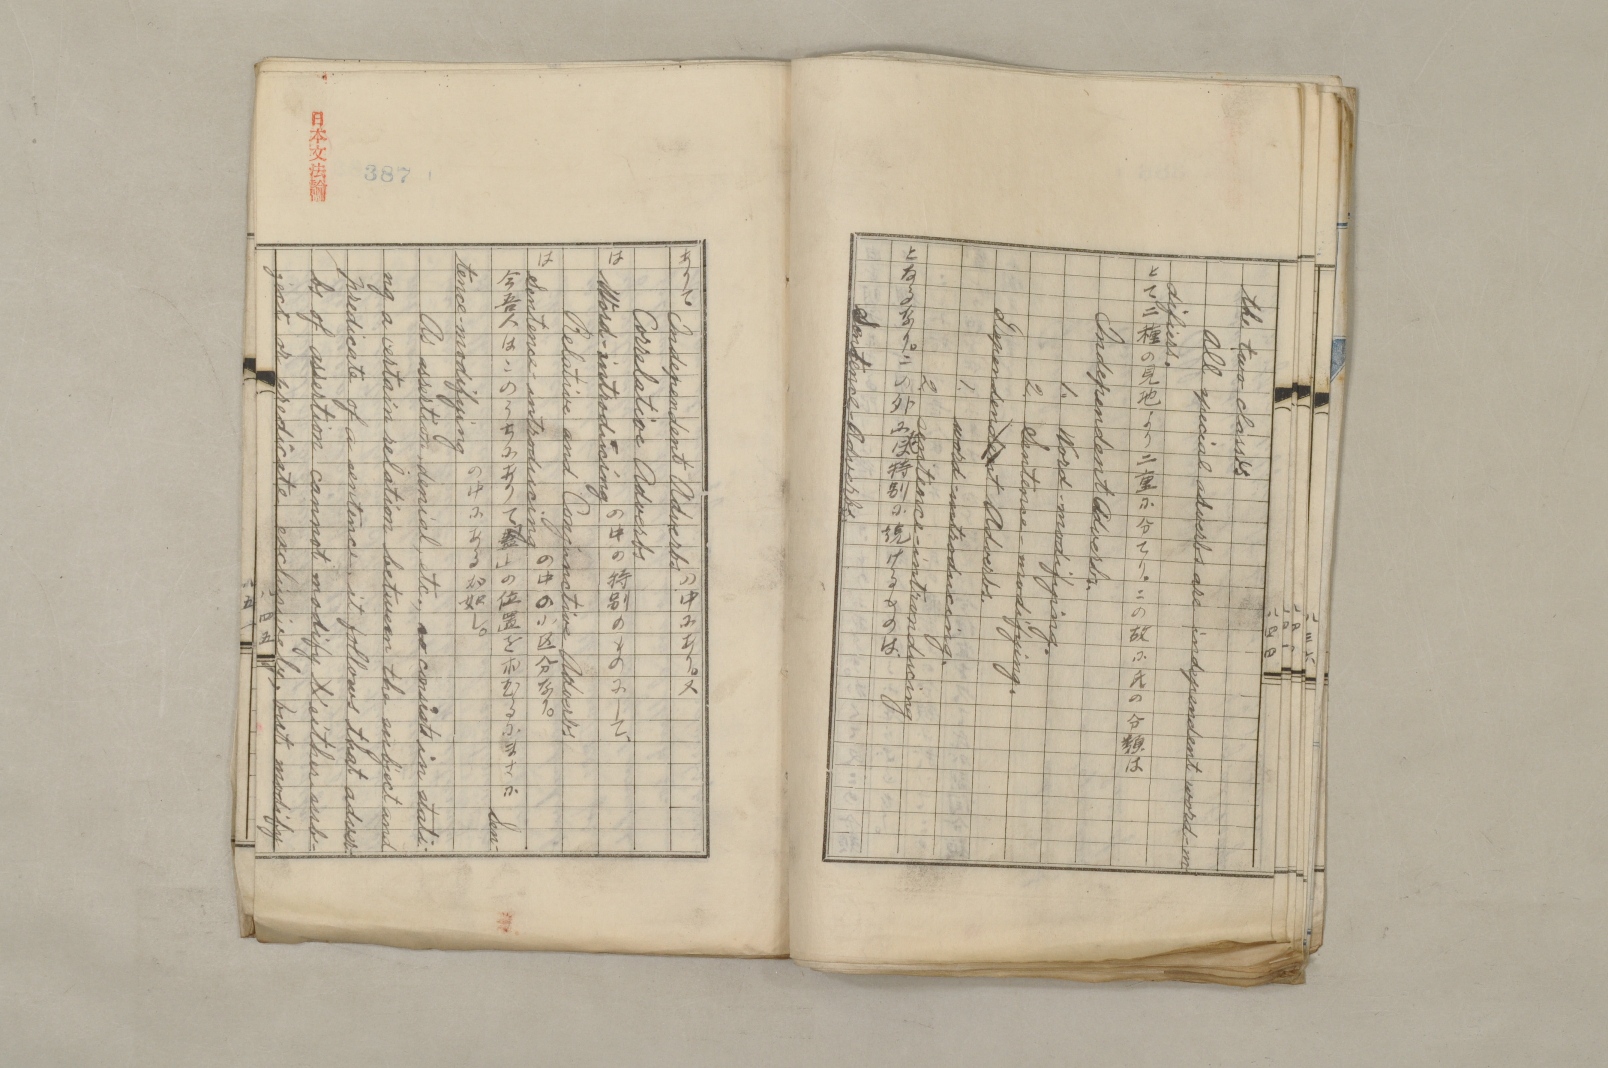 the two classes.
All special adverbs are independent word-m
difiers.
とて二種の見地より二重に分てり。この故に氏の分類は
Independent Adverbs.
1. Word-modifying.
2. Sentence-modifying.
Dependent Adverbs.
1. word-introducing.
2. sentence-introducing
となるなり。この外に特別に説けるものは
Sentence Adverbs.
日本文法論
387
ありて Independent Adverbs の中にあり。又
Correlative Adverbs
は Word-introducing の中の特別のものにして、
Relative and Conjunctive Adverbs
は Sentence-introducing の中の小区分なり。
今吾人はこのうちにありて の位置を むるにまさに Sen-
tence-modifying の中にある如し。
As assertion, denial, etc., consists in stati-
ng a certain relation between the subject and
predicate of a sentence, it follows that adver-
bs of assertion cannot modify either sub-
ject or predicate exclusively, but modify